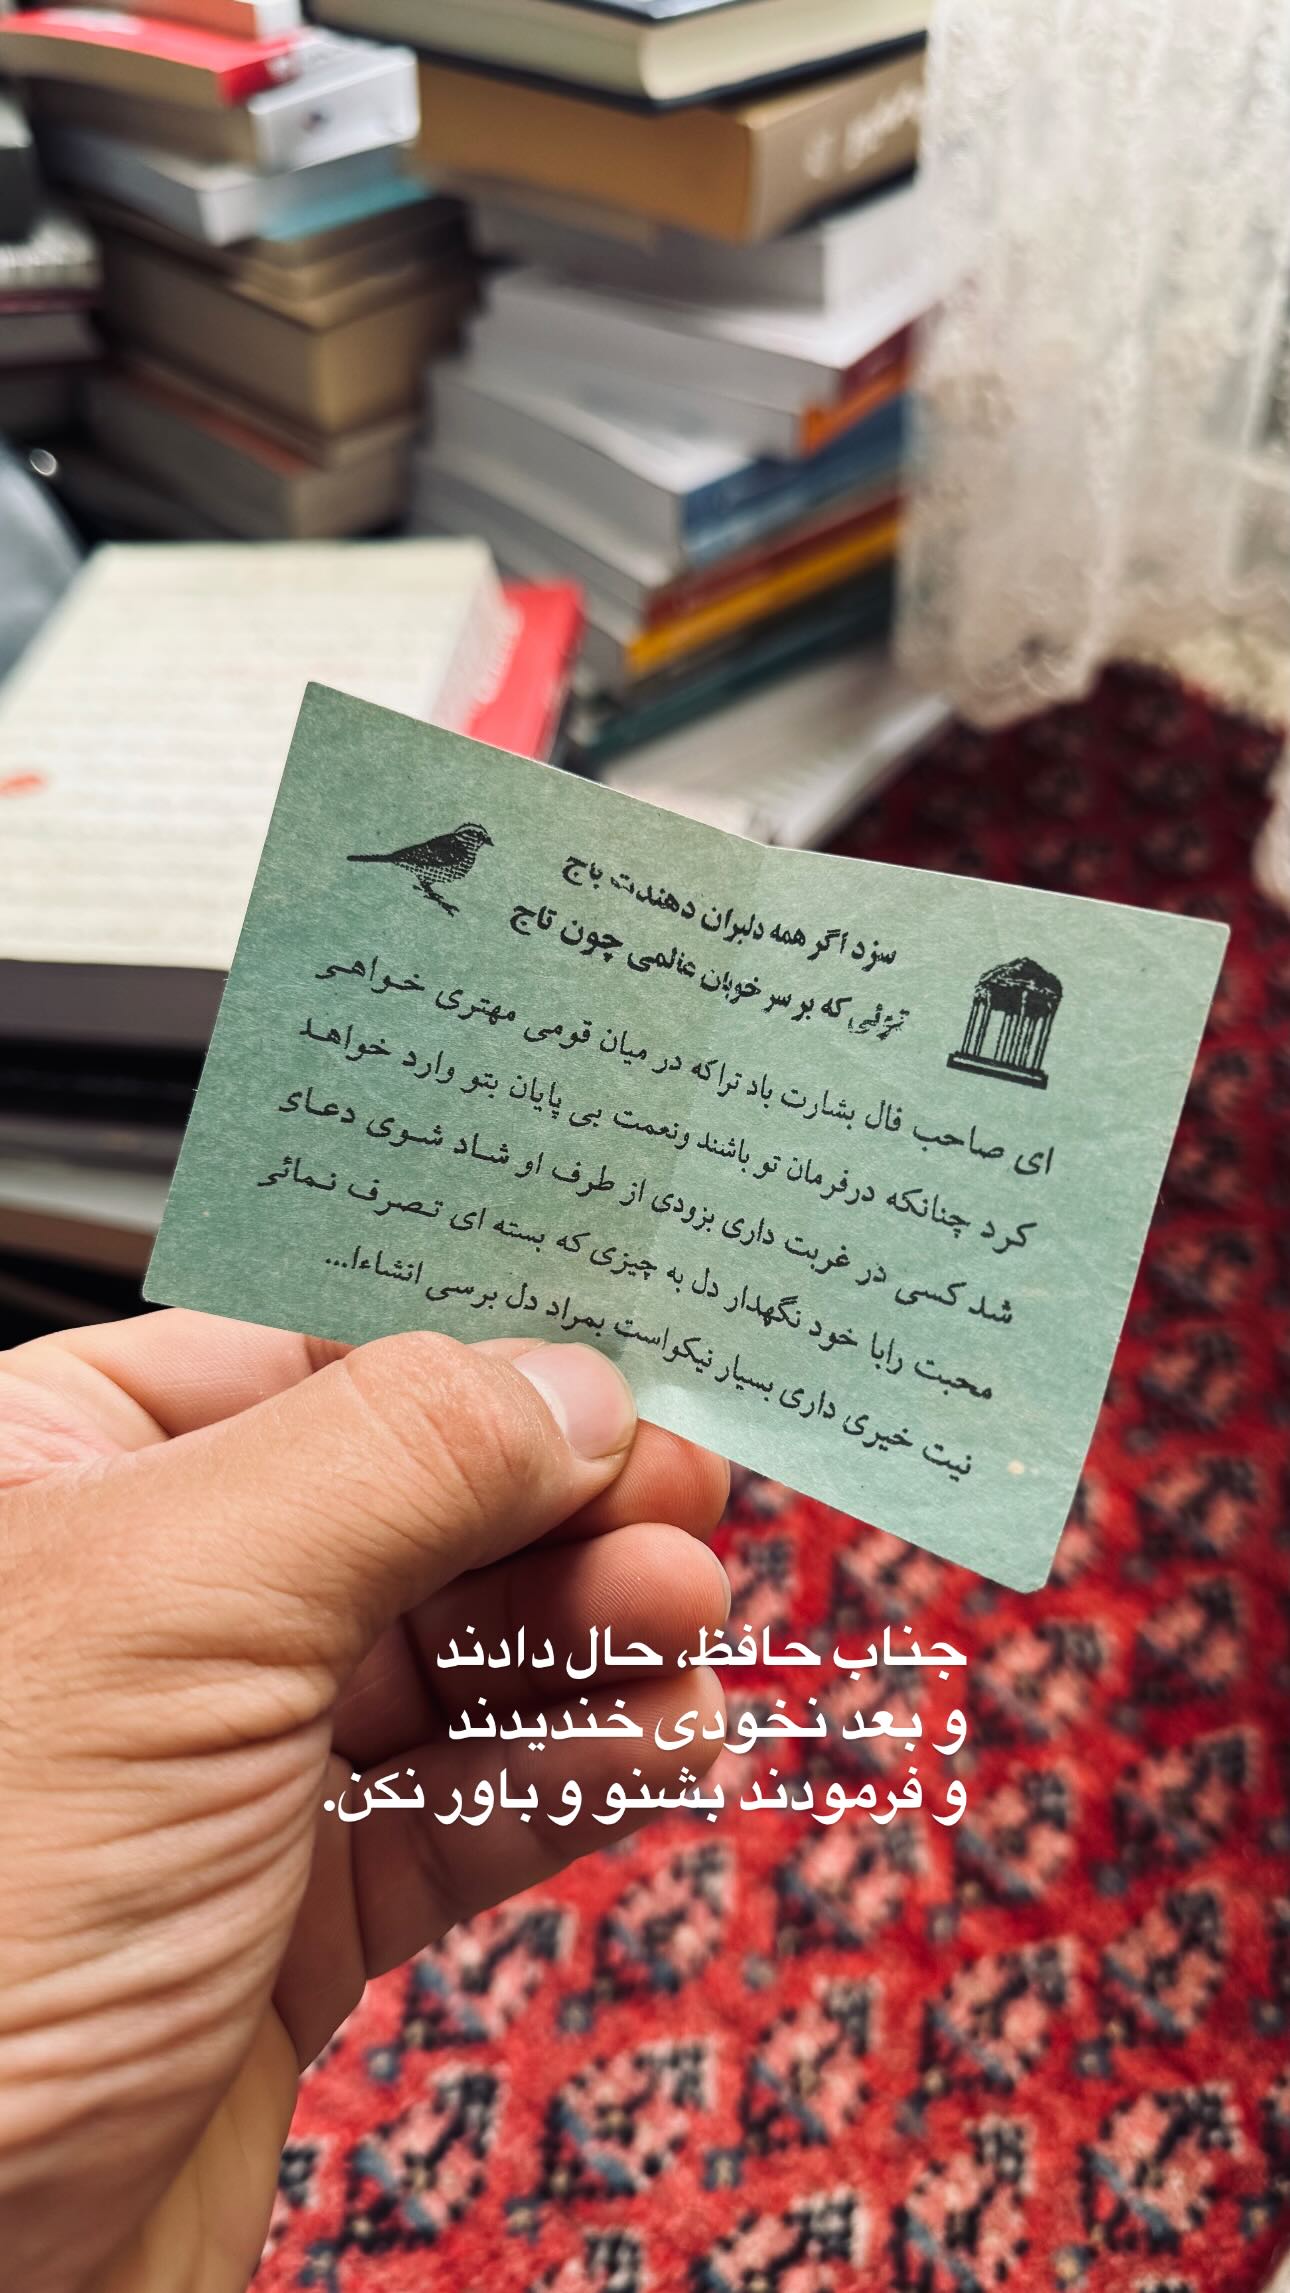 سزد اگر همه دلبران دهندت باج
توئی که بر سر خوبان عالمی چون تاج
ای صاحب فال بشارت باد تراکه در میان قومی مهتری خواهی
کرد چنانکه درفرمان تو باشند ونعمت بی پایان بتو وارد خواهد
شد کسی در غربت داری بزودی از طرف او شاد شوی دعای
محبت رابا خود نگهدار دل به چیزی که بسته ای تصرف نمائی
نیت خیری داری بسیار نیکواست بمراد دل برسی انشاءا...
جناب حافظ، حال دادند
و بعد نخودی خندیدند
و فرمودند بشنو و باور نکن.